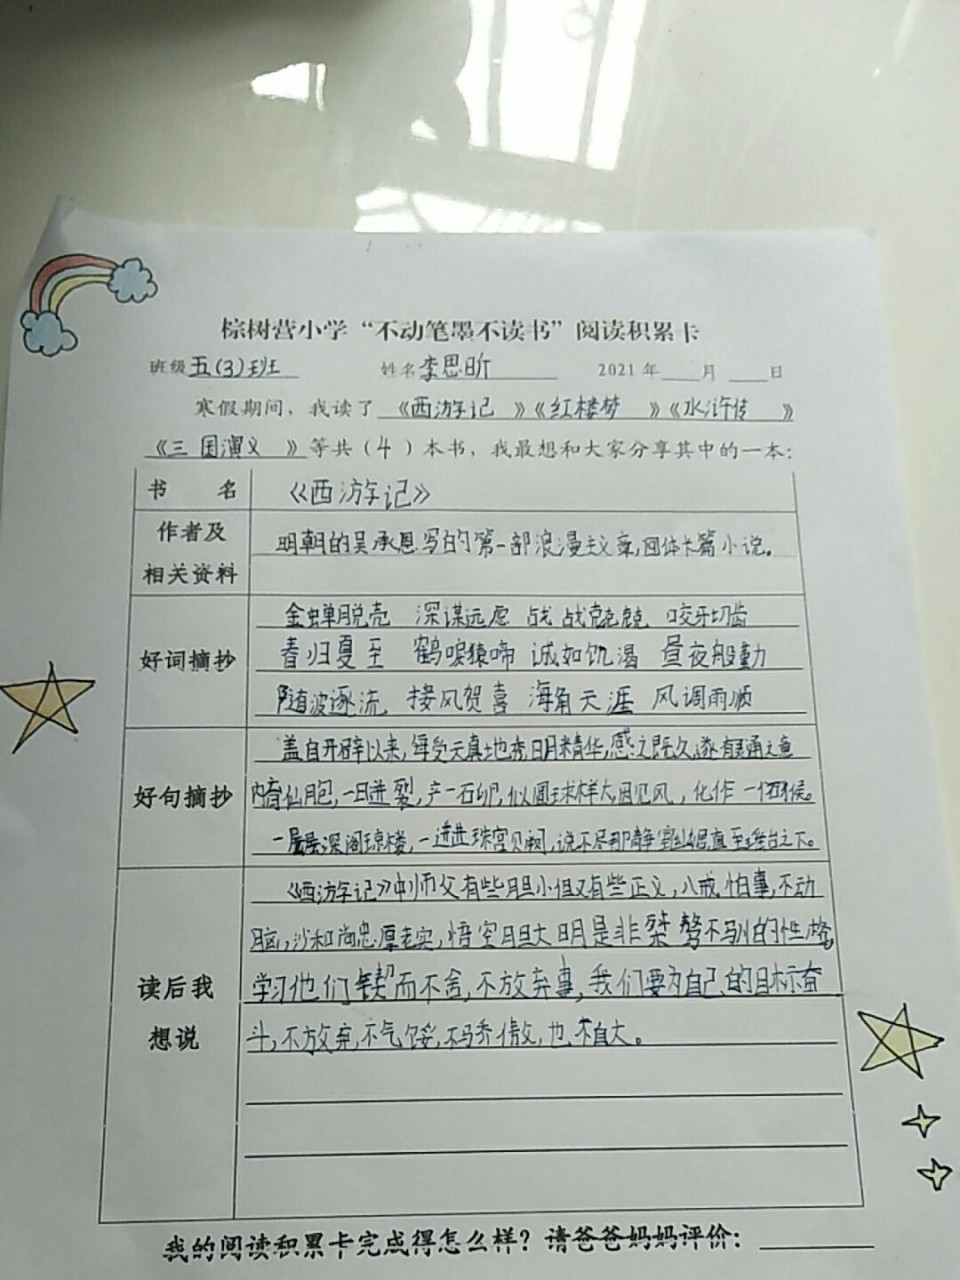 棕树营小学“不动笔墨不读书”阅读积累卡
班级 五(3)班 姓名 李思昕 2021年 月 日
寒假期间，我读了《西游记》《红楼梦》《水浒传》
《三国演义》等共（4）本书，我最想和大家分享其中的一本：
书名 《西游记》
作者及相关资料
明朝的吴承恩写的第一部浪漫主义章回体长篇小说。
好词摘抄
金蝉脱壳 深谋远虑 战战兢兢 咬牙切齿
春归夏至 鹤唳猿啼 诚如饥渴 昼夜殷勤
随波逐流 接风贺喜 海角天涯 风调雨顺
好句摘抄
盖自开辟以来,每受天真地秀,日月精华,感之既久,遂有灵通之意
内育仙胞,一日迸裂,产一石卵,似圆球样大,因见风,化作一个石猴。
一层层深阁琼楼,一进进珠宫贝阙,说不尽那静室幽居,直至瑶台之下。
读后我想说
《西游记》中师父有些胆小但又有些正义,八戒怕事,不动
脑,沙和尚忠厚老实,悟空胆大明是非桀骜不驯的性格,
学习他们锲而不舍,不放弃事,我们要为自己的目标奋
斗,不放弃,不气馁,不骄傲,也不自大。
我的阅读积累卡完成得怎么样？请爸爸妈妈评价：